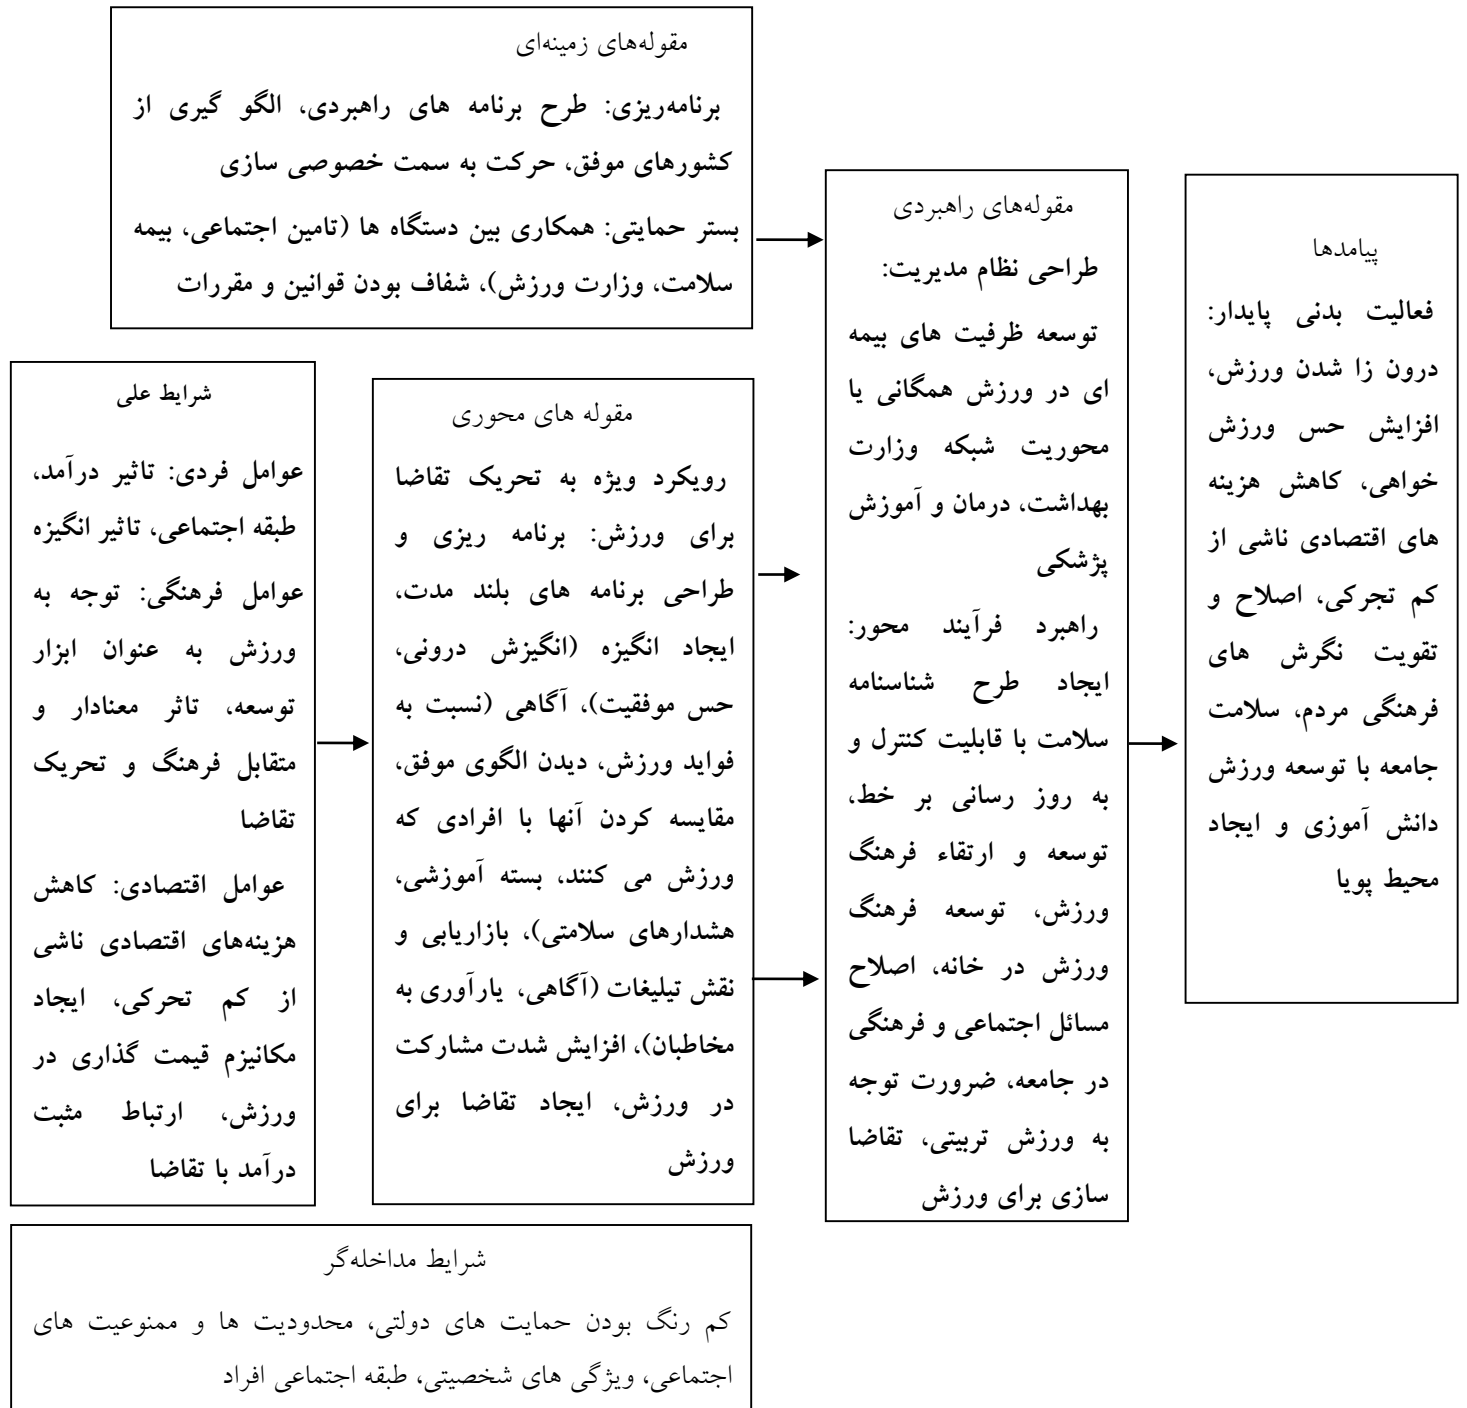 مقوله‌های زمینه‌ای
برنامه‌ریزی: طرح برنامه های راهبردی، الگو گیری از
کشورهای موفق، حرکت به سمت خصوصی سازی
بستر حمایتی: همکاری بین دستگاه ها (تامین اجتماعی، بیمه
سلامت، وزارت ورزش)، شفاف بودن قوانین و مقررات
شرایط علی
عوامل فردی: تاثیر درآمد،
طبقه اجتماعی، تاثیر انگیزه
عوامل فرهنگی: توجه به
ورزش به عنوان ابزار
توسعه، تاثر معنادار و
متقابل فرهنگ و تحریک
تقاضا
عوامل اقتصادی: کاهش
هزینه‌های اقتصادی ناشی
از کم تحرکی، ایجاد
مکانیزم قیمت گذاری در
ورزش، ارتباط مثبت
درآمد با تقاضا
مقوله های محوری
رویکرد ویژه به تحریک تقاضا
برای ورزش: برنامه ریزی و
طراحی برنامه های بلند مدت،
ایجاد انگیزه (انگیزش درونی،
حس موفقیت)، آگاهی (نسبت به
فواید ورزش، دیدن الگوی موفق،
مقایسه کردن آنها با افرادی که
ورزش می کنند، بسته آموزشی،
هشدارهای سلامتی)، بازاریابی و
نقش تیلیغات (آگاهی، یارآوری به
مخاطبان)، افزایش شدت مشارکت
در ورزش، ایجاد تقاضا برای
ورزش
مقوله‌های راهبردی
طراحی نظام مدیریت:
توسعه ظرفیت های بیمه
ای در ورزش همگانی یا
محوریت شبکه وزارت
بهداشت، درمان و آموزش
پزشکی
راهبرد فرآیند محور:
ایجاد طرح شناسنامه
سلامت با قابلیت کنترل و
به روز رسانی بر خط،
توسعه و ارتقاء فرهنگ
ورزش، توسعه فرهنگ
ورزش در خانه، اصلاح
مسائل اجتماعی و فرهنگی
در جامعه، ضرورت توجه
به ورزش تربیتی، تقاضا
سازی برای ورزش
پیامدها
فعالیت بدنی پایدار:
درون زا شدن ورزش،
افزایش حس ورزش
خواهی، کاهش هزینه
های اقتصادی ناشی از
کم تجرکی، اصلاح و
تقویت نگرش های
فرهنگی مردم، سلامت
جامعه با توسعه ورزش
دانش آموزی و ایجاد
محیط پویا
شرایط مداخله‌گر
کم رنگ بودن حمایت های دولتی، محدودیت ها و ممنوعیت های
اجتماعی، ویژگی های شخصیتی، طبقه اجتماعی افراد